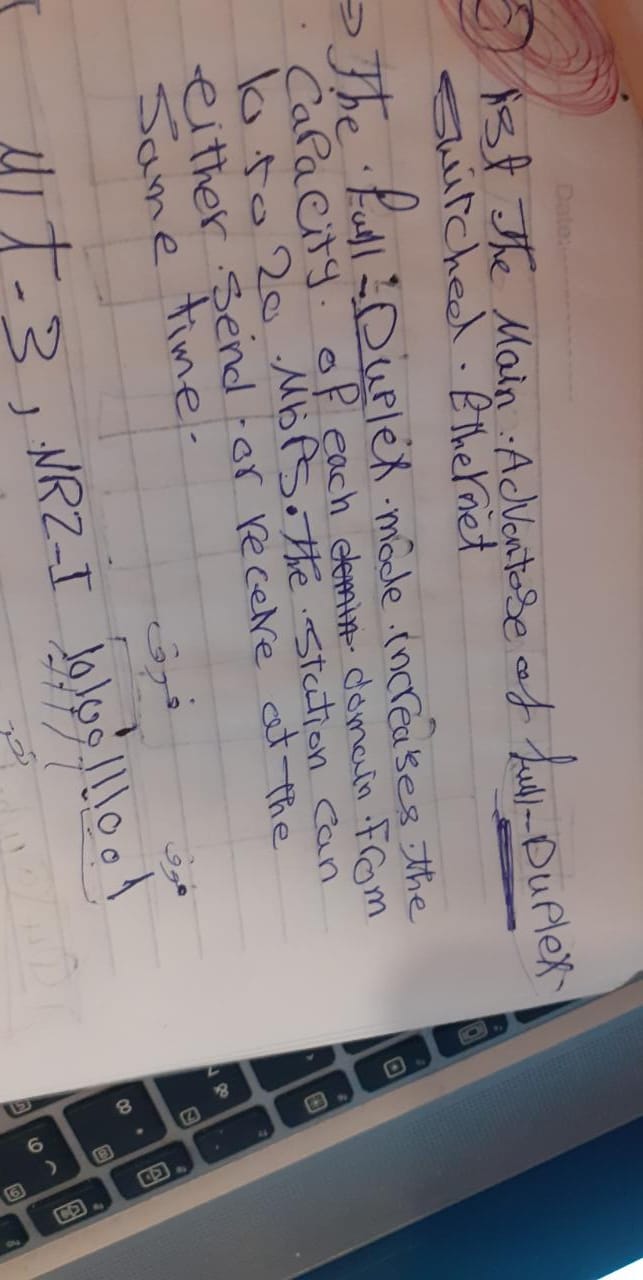 Date:
ist The Main Advantage of full-Duplex
switched Ethernet
⇒ The full-Duplex mode increases the
Capacity of each domain From
10 to 20 Mbps. The station can
either send or receive at the
Same time.
فرق فوق
MLT-3, NRZ-I